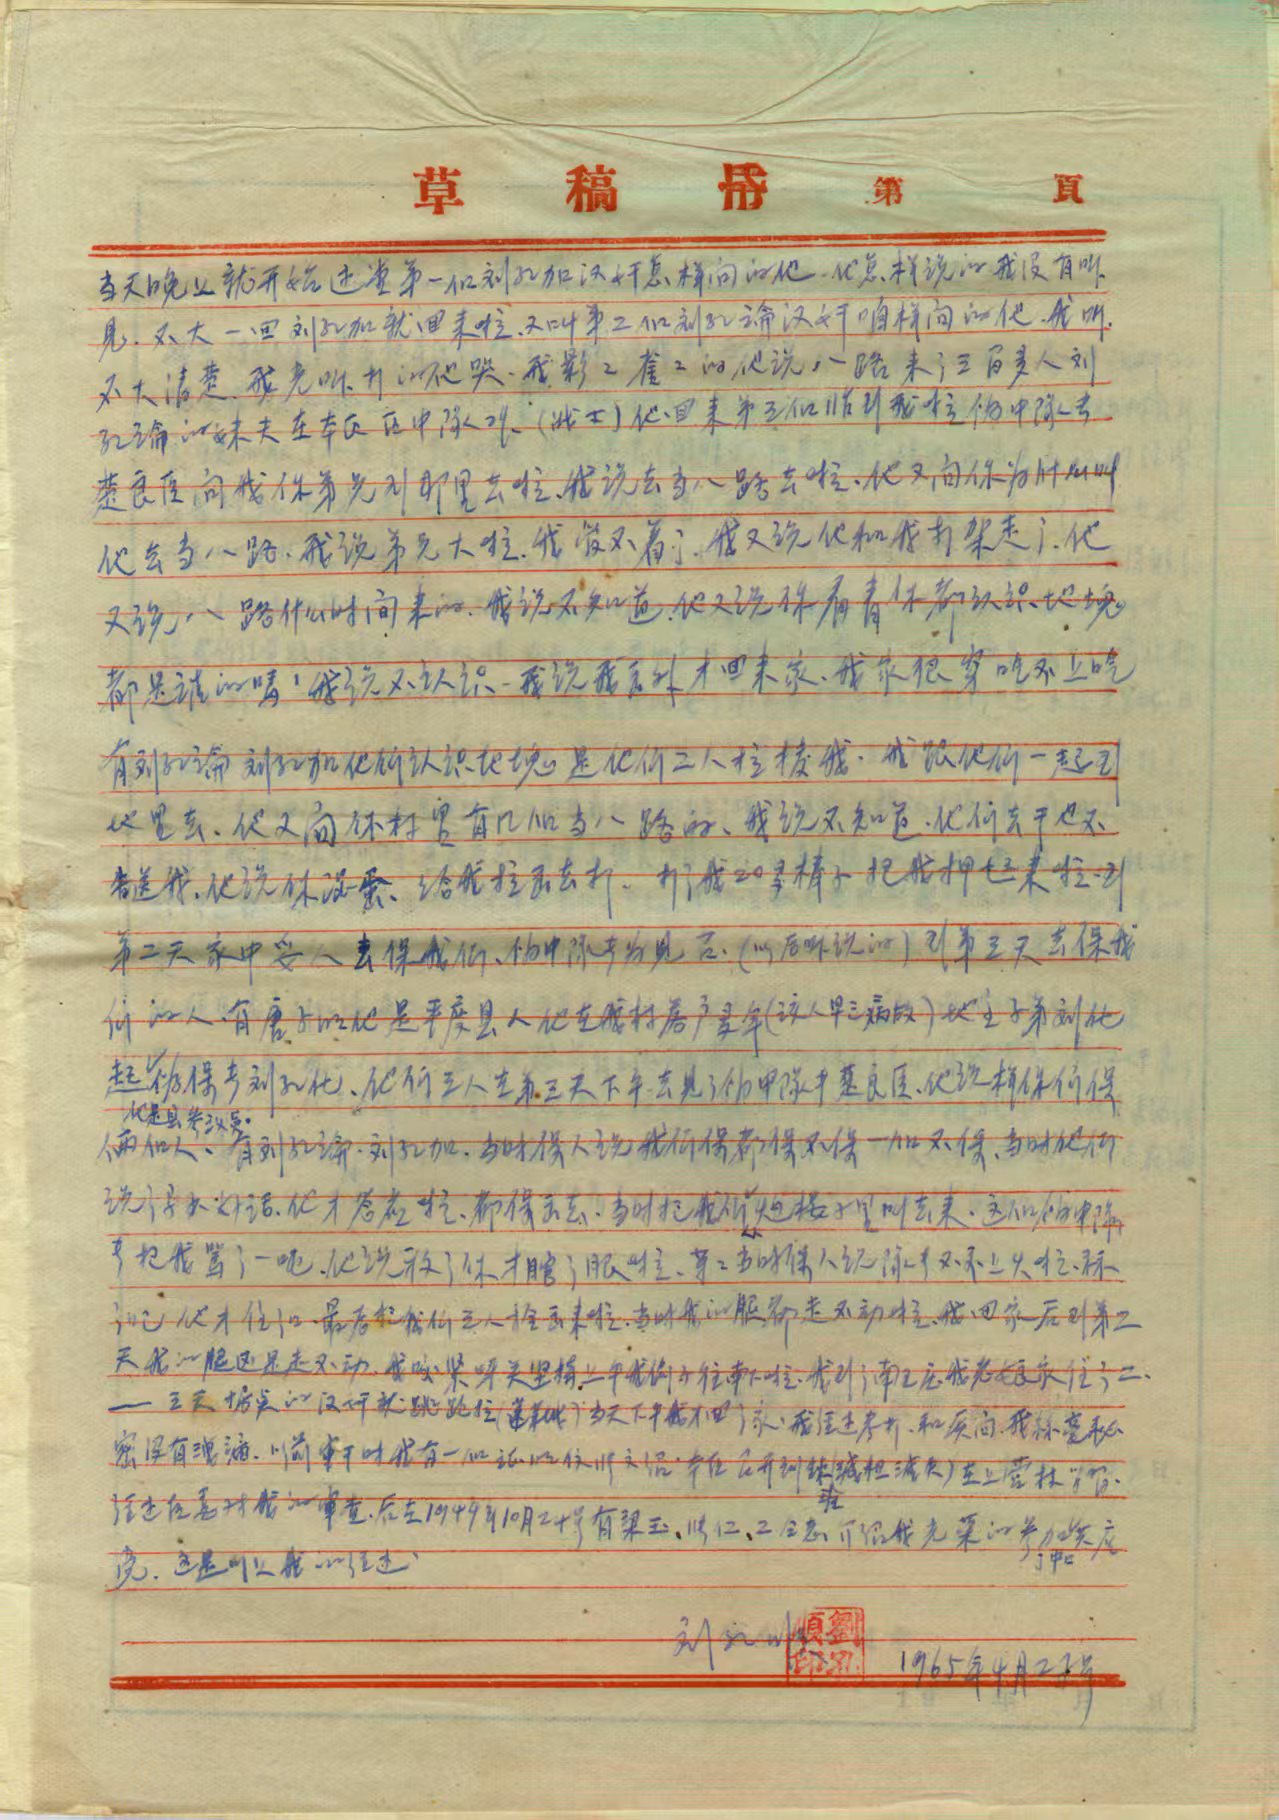 草稿帋 第 頁
当天晚上就开始过堂第一个刘孔加汉奸怎样问的他.他怎样说的我没有听
见.不大一回刘孔加就回来啦.又叫第二个刘孔論汉奸咱样问的他.我听.
不大清楚.我光听打的他哭.我影二 二的他说八路来了三百多人刘
孔論的妹夫在本区区中队里.(战士)他回来第三个临到我啦伪中队长
楚良臣问我你弟兄到那里去啦.我说去当八路去啦.他又问你为什么叫
他去当八路.我说弟兄大啦.我管不着了.我又说他和我打架走了.他
又说八路什么时间来的.我说不知道.他又说你看青你都认识地块
都是谁的吗!我说不认识.我说我去外才回来家.我家很穷吃不上吃
有刘孔論刘孔加他们认识地块是他们二人 我.我跟他们一起到
地里去.他又问你村里有几个当八路的.我说不知道.他们去干也不
告送我.他说你混蛋.给我拉出去打.打了我20多棒子把我押起来啦.到
第二天家中妥人去保我们.伪中队长为见否.(以后听说的)到第三天去保我
们的人.有唐 他是平度县人他在我村居户多年(该人早已病故)地主子弟刘化
起 伪保长刘孔化.他们三人在第三天下午去见了伪中队长楚良臣.他说 你们保
他是县参议员.
俩个人.有刘孔論.刘孔加.当时保人说我们保都保不保一个不保.当时他们
说了多少好话.他才答应啦.都保出去.当时把我们从炮楼子里叫出来.这个伪中队
长把我骂了一吨.他说放了你才瞎了眼啦.等二当时保人说队长又不上火啦.
了吧他才住口.最后把我们三人 出来啦.当时我的腿都走不动啦.我回家后到第二
天我的腿还是走不动.我咬紧呀关坚持上午我 子往南下啦.我到了南王庄我老 家住了二.
——三天据点的汉奸就跳跑拉( )当天下午我才回了家.我经过考打.和质问.我丝毫秘
密没有洩漏.以前审干时我有一个证明信 介绍.本区召开训练班 在上 林学习.
经过区委对我的审查.后在1949年10月24号有梁玉、 仁、二同志介绍我光荣的参加了中共
党.这是以上我的经过.
刘孔順 劉孔順印
1965年4月25号